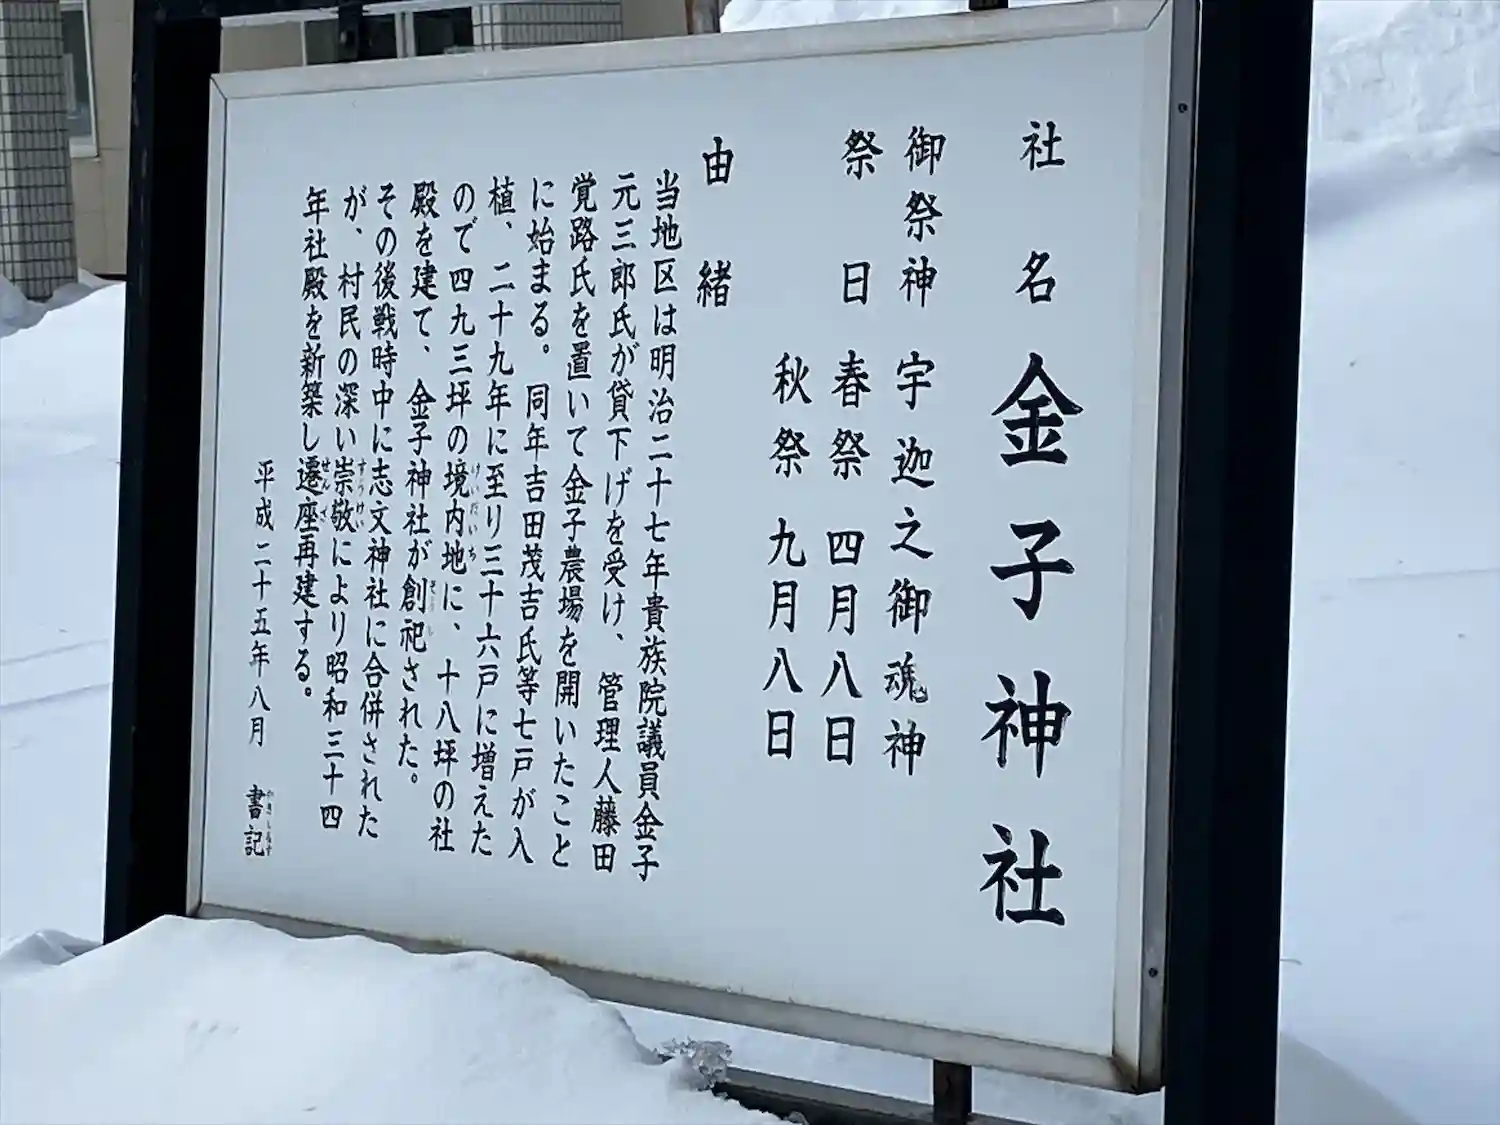 社名 金子神社
御祭神 宇迦之御魂神
祭日 春祭 四月八日
秋祭 九月八日
由緒
当地区は明治二十七年貴族院議員金子
元三郎氏が貸下げを受け、管理人藤田
覚路氏を置いて金子農場を開いたこと
に始まる。同年吉田茂吉氏等七戸が入
植、二十九年に至り三十六戸に増えた
ので四九三坪の境内地に、十八坪の社
けいだいち
殿を建て、金子神社が創祀された。
そうし
その後戦時中に志文神社に合併された
が、村民の深い崇敬により昭和三十四
すうけい
年社殿を新築し遷座再建する。
せんざ
平成二十五年八月 書記